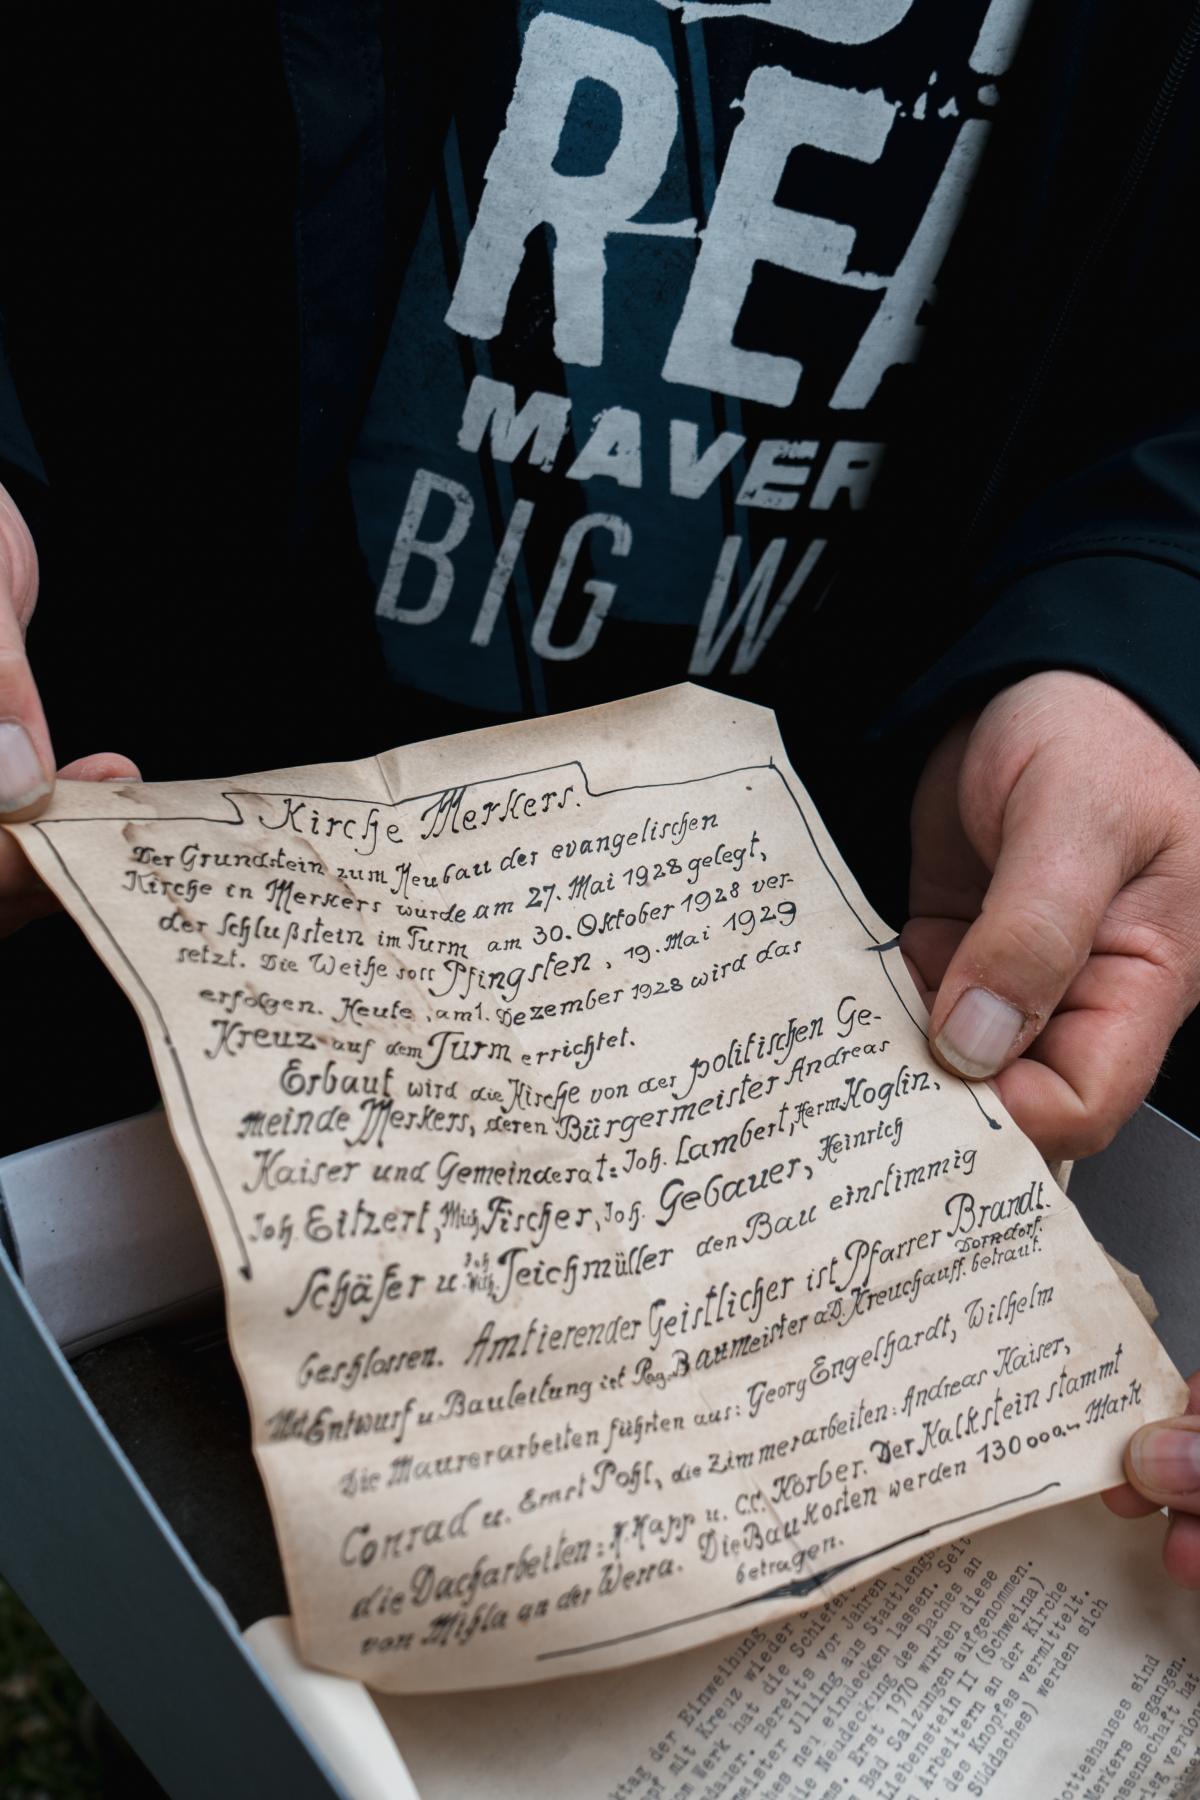 RE
MAVER
BIG W
Kirche Merkers.
Der Grundstein zum Neubau der evangelischen
Kirche in Merkers wurde am 27. Mai 1928 gelegt,
der Schlußstein im Turm am 30. Oktober 1928 ver-
setzt. Die Weihe soll Pfingsten, 19. Mai 1929
erfolgen. Heute, am 1. Dezember 1928 wird das
Kreuz auf dem Turm errichtet.
Erbaut wird die Kirche von der politischen Ge-
meinde Merkers, deren Bürgermeister Andreas
Kaiser und Gemeinderat: Joh. Lambert, Herm. Koglin,
Joh. Eitzert, Mich. Fischer, Joh. Gebauer, Heinrich
Schäfer u. Teichmüller den Bau einstimmig
beschlossen. Amtierender Geistlicher ist Pfarrer Brandt.
Mit Entwurf u. Bauleitung ist Reg. Baumeister a.D. Kreuchauff, Dorndorf. betraut.
Die Maurerarbeiten führten aus: Georg Engelhardt, Wilhelm
Conrad u. Ernst Pohl, die Zimmerarbeiten: Andreas Kaiser,
die Dacharbeiten: K. Kapp u. C.C. Körber. Der Kalkstein stammt
von Mihla an der Werra. Die Baukosten werden 130000.- Mark
betragen.
der Einweihung
mit Kreuz wieder
vom Werk hat die Schiefer
dauer. Bereits vor Jahren
meister Jlling aus Stadtlengs
neu eindecken lassen. Seit
Neudeckung des Daches an
ms. Erst 1970 wurden diese
Bad Salzungen aufgenommen.
Liebenstein II (Schweina)
Arbeitern an der Kirche
des Knopfes vermittelt.
Süddaches) werden sich
otteshauses sind
Merkers gegangen.
ossenschaft hat